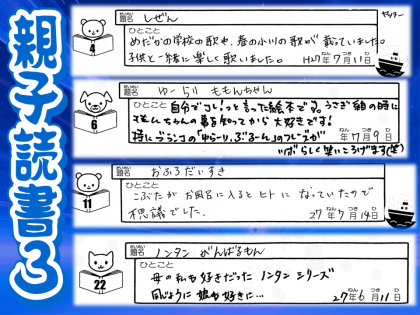 親子読書3
やった〜
題名 しぜん
ひとこと
めだかの学校の歌や、春の小川の歌が載っていました。
子供と一緒に楽しく歌いました。 H27年7月11日
4
題名 ゆーらり ももんちゃん
ひとこと
自分で「コレ!」っと言った絵本です。うさぎ組の時に
ももんちゃんの事を知ってから大好きです!
特にブランコの「ゆらーり、ぶるーん」のフレーズが
年7月9日
6
すばらしく笑いころげます(笑)
題名 おふろだいすき
ひとこと
こぶたが お風呂に入ると ヒトに なっていたので
不思議でした。 27年7月14日
11
題名 ノンタン がんばるもん
ひとこと
母の私も好きだった ノンタン シリーズ
同じように 娘も好きに…
27年6月11日
22